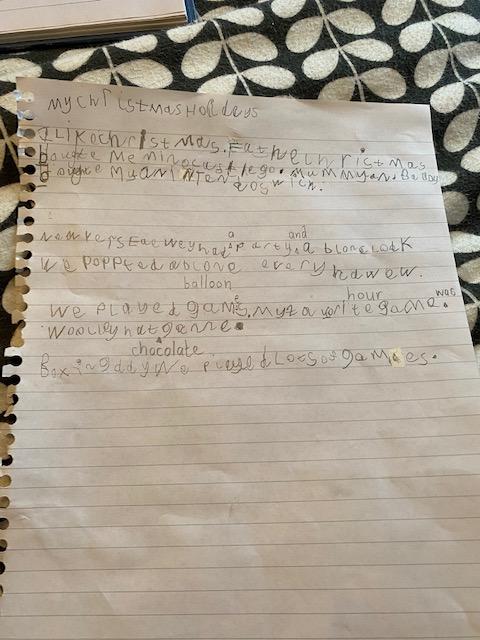 My christmas Holidays
I Liko christmas. Father christmas
bougte Me Minocraft lego. Mummy an. Daddy
bougte My an NinTen dos wich.
a and
New yers Eae we y had party a blone clock
We Poppted a blone every hawew.
balloon hour
We Played games. My favorite game was
woolley hat game.
chocolate
Boxing ddy We played Lots of games.